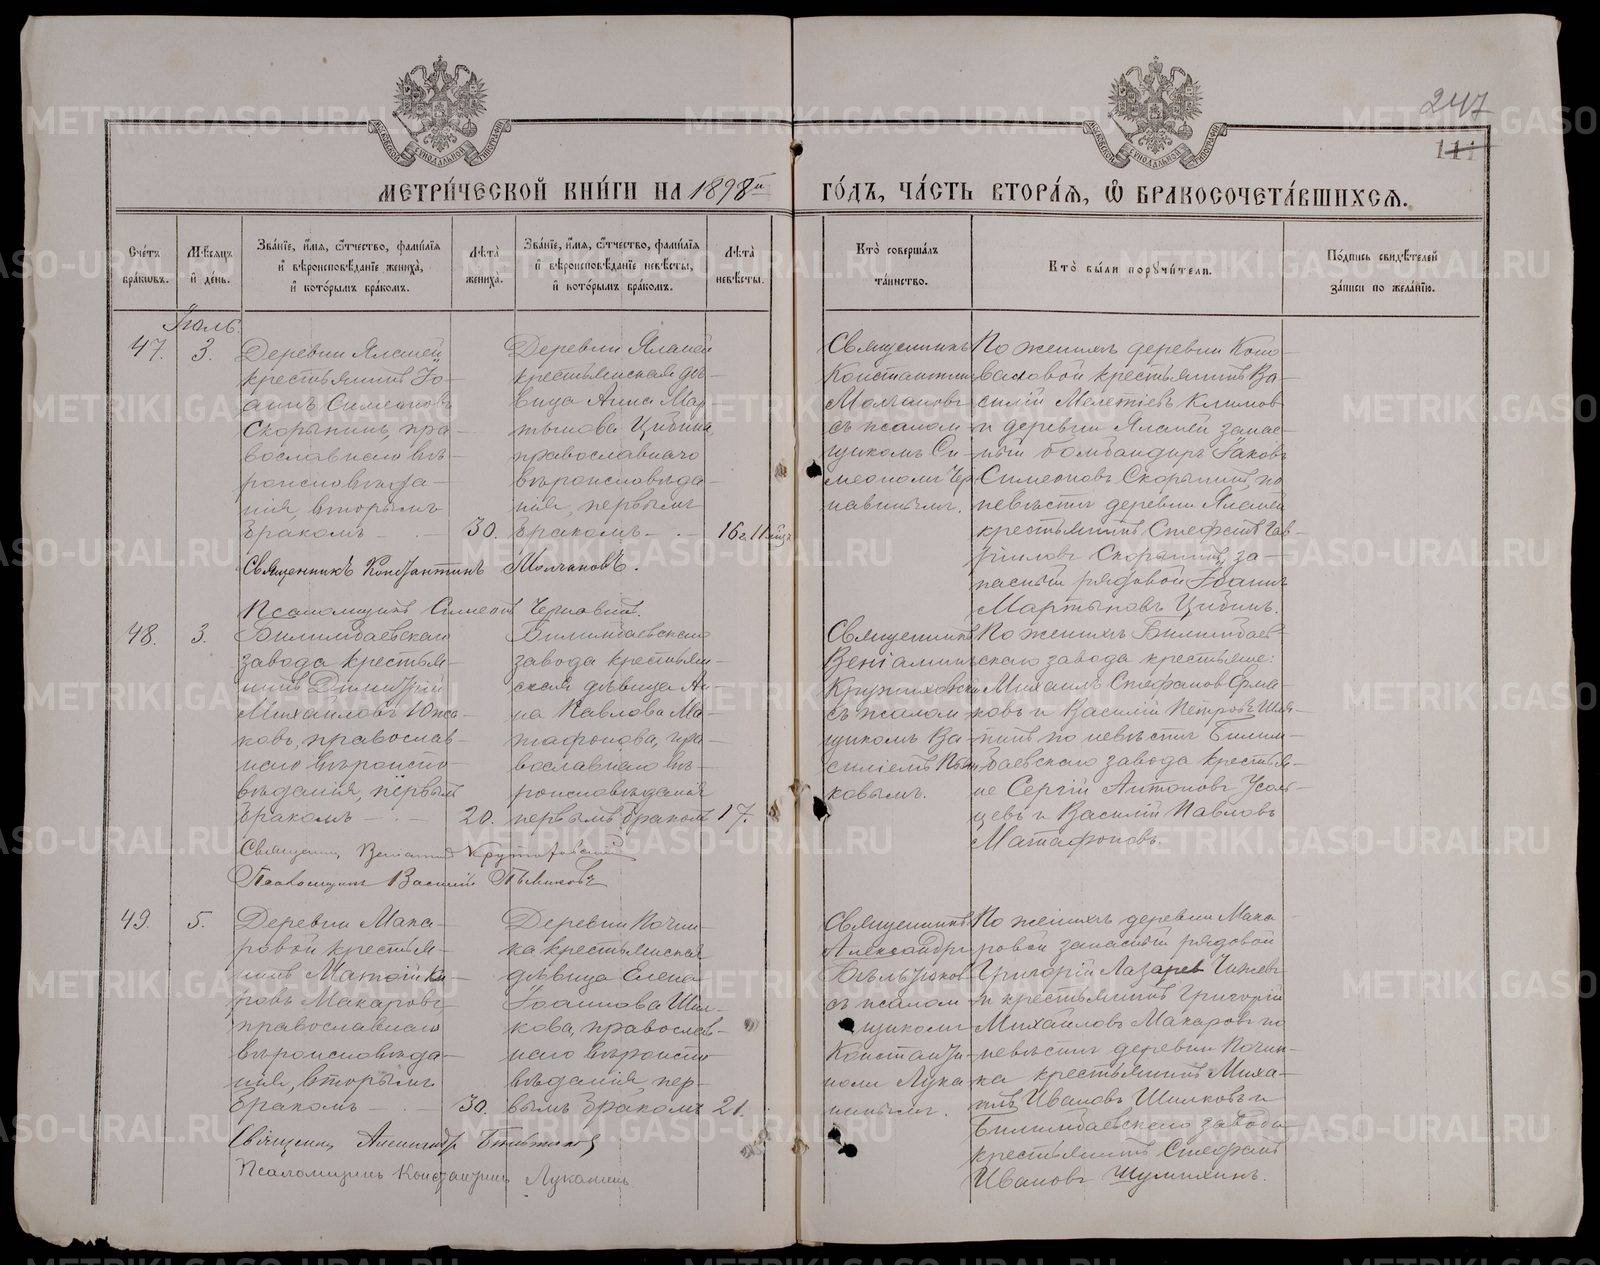 247
111
МОСКОВСКОЙ СѴНОДАЛЬНОЙ ТИПОГРАФІИ
МОСКОВСКОЙ СѴНОДАЛЬНОЙ ТИПОГРАФІИ
МЕТРИ́ЧЕСКОЙ КНИ́ГИ НА 1898й ГО́ДЪ, ЧА́СТЬ ВТОРА́Я, Ѽ БРАКОСОЧЕТА́ВШИХСЯ.
Сче́тъ бра́ковъ.
Мѣ́сяцъ и҆ де́нь.
Зва́нїе, и҆́мя, ѻ҆́тчество, фами́лїя и҆ вѣроисповѣ́данїе жениха̀, и҆ кото́рымъ бра́комъ.
Лѣ́та жениха̀.
Зва́нїе, и҆́мя, ѻ҆́тчество, фами́лїя и҆ вѣроисповѣ́данїе невѣ́сты, и҆ кото́рымъ бра́комъ.
Лѣ́та невѣ́сты.
Кто̀ соверша́лъ та́инство.
Кто̀ бы́ли поручи́тели.
По́дпись свидѣ́телей за́писи по жела́нїю.
Іюль.
47.
3.
Деревни Яламей
крестьянинъ Іо-
аннъ Симеоновъ
Скорынинъ, пра-
вославнаго вѣ-
роисповѣда-
нія, вторымъ
бракомъ
30.
Деревни Яламей
крестьянская дѣ-
вица Анна Мар-
тынова Цибина
православнаго
вѣроисповѣда-
нія, первымъ
бракомъ
16 г. 11 мѣс.
Священникъ
Константинъ
Молчановъ
съ псалом-
щикомъ Си-
меономъ Чер-
навинымъ.
По женихѣ деревни Коно-
валовой крестьянинъ Ва-
силій Мелетіевъ Климовъ
и деревни Яламей запас-
ный бомбандиръ Іаковъ
Симеоновъ Скорынинъ, по
невѣстѣ деревни Яламей
крестьянинъ Стефанъ Гав-
риловъ Скорынинъ, за-
пасный рядовой Іоаннъ
Мартыновъ Цибинъ.
Священникъ Константинъ Молчановъ.
Псаломщикъ Симеонъ Чернавинъ.
48.
3.
Билимбаевскаго
завода крестья-
нинъ Димитрій
Михаиловъ Южа-
ковъ, православ-
наго вѣроиспо-
вѣданія, первымъ
бракомъ
20.
Билимбаевскаго
завода крестьян-
ская дѣвица Ан-
на Павлова Ма-
тафонова, пра-
вославнаго вѣ-
роисповѣданія
первымъ бракомъ
17.
Священникъ
Веніаминъ
Круликовскій
съ псалом-
щикомъ Ва-
силіемъ Пьян-
ковымъ.
По женихѣ Билимбаев-
скаго завода крестьяне:
Михаилъ Стефановъ Ерма-
ковъ и Василій Петровъ Шиш-
нинъ по невѣстѣ Билим-
баевскаго завода крестья-
не Сергій Антоновъ Усоль-
цевъ и Василій Павловъ
Матафоновъ.
Священникъ Веніаминъ
Псаломщикъ Василій Пьянковъ
49.
5.
Деревни Мака-
ровой крестья-
нинъ Матѳій Ки-
ровъ Макаровъ
православнаго
вѣроисповѣда-
нія, вторымъ
бракомъ
30.
Деревни Почин-
ка крестьянская
дѣвица Елена
Іоаннова Шил-
кова, православ-
наго вѣроиспо-
вѣданія, пер-
вымъ бракомъ
21.
Священникъ
Александръ
съ псалом-
щикомъ
Константи-
номъ Лука-
нинымъ.
По женихѣ деревни Мака-
ровой запасный рядовой
Григорій Лазарев Чижевъ
и крестьянинъ Григорій
Михаиловъ Макаровъ по
невѣстѣ деревни Почин-
ка крестьянинъ Миха-
илъ Ивановъ Шилковъ и
Билимбаевскаго завода
крестьянинъ Стефанъ
Ивановъ Шумихинъ.
Священникъ Александръ
Псаломщикъ Константинъ Луканинъ